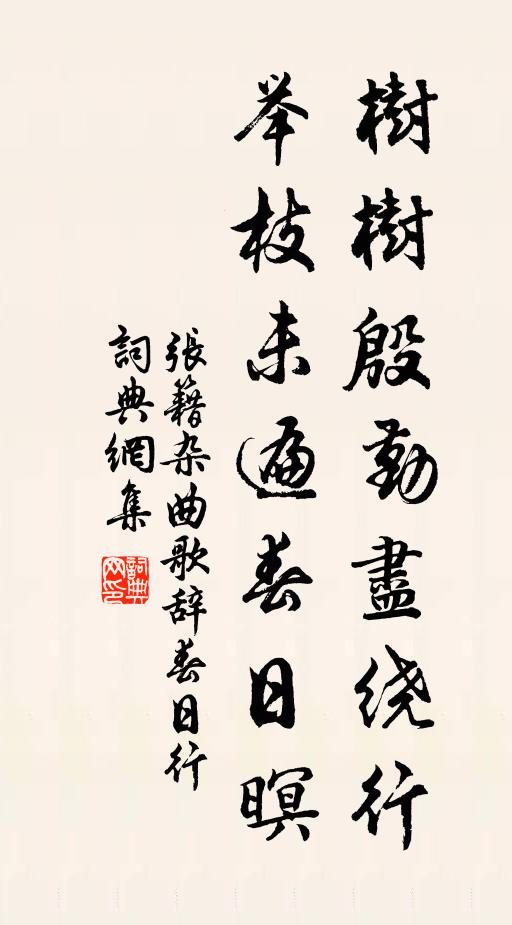 樹樹殷勤盡绕行
举枝未遍春日暝
張籍杂曲歌辞春日行
詞典網集
詞典网印